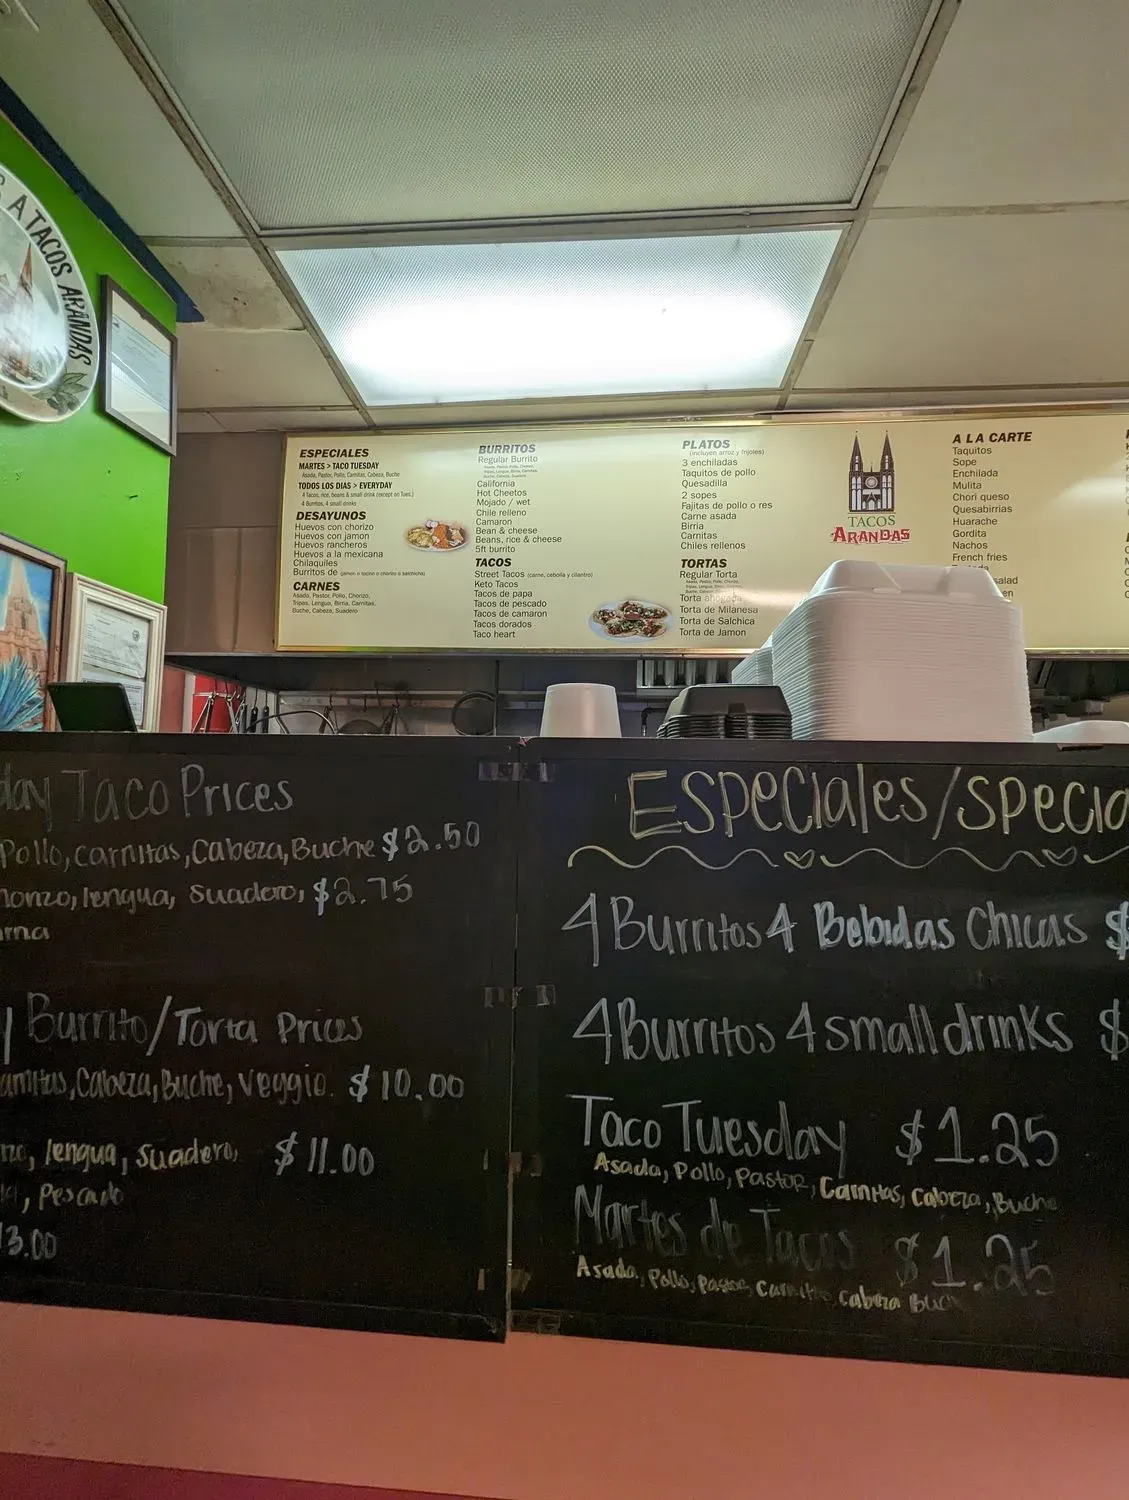 A TACOS ARANDAS
ESPECIALES
MARTES > TACO TUESDAY
Asada, Pastor, Pollo, Carnitas, Cabeza, Buche
TODOS LOS DIAS > EVERYDAY
4 Tacos, rice, beans & small drink (except on Tues.)
4 Burritos, 4 small drinks
DESAYUNOS
Huevos con chorizo
Huevos con jamon
Huevos rancheros
Huevos a la mexicana
Chilaquiles
Burritos de (jamon o tocino o chorizo o salchicha)
CARNES
Asada, Pastor, Pollo, Chorizo,
Tripas, Lengua, Birria, Carnitas,
Buche, Cabeza, Suadero
BURRITOS
Regular Burrito
Asada, Pastor, Pollo, Chorizo,
Tripas, Lengua, Birria, Carnitas,
Buche, Cabeza, Suadero
California
Hot Cheetos
Mojado / wet
Chile relleno
Camaron
Bean & cheese
Beans, rice & cheese
5ft burrito
TACOS
Street Tacos (carne, cebolla y cilantro)
Keto Tacos
Tacos de papa
Tacos de pescado
Tacos de camaron
Tacos dorados
Taco heart
PLATOS
(incluyen arroz y frijoles)
3 enchiladas
Taquitos de pollo
Quesadilla
2 sopes
Fajitas de pollo o res
Carne asada
Birria
Carnitas
Chiles rellenos
TORTAS
Regular Torta
Asada, Pastor, Pollo, Chorizo,
Tripas, Lengua, Birria, Carnitas,
Buche, Cabeza, Suadero
Torta ahogada
Torta de Milanesa
Torta de Salchica
Torta de Jamon
TACOS
ARANDAS
A LA CARTE
Taquitos
Sope
Enchilada
Mulita
Chori queso
Quesabirrias
Huarache
Gordita
Nachos
French fries
salad
day Taco Prices
Pollo, Carnitas, Cabeza, Buche $2.50
lengua, suadero, $2.75
Burrito/Torta Prices
Cabeza, Buche, Veggie. $10.00
lengua, suadero, $11.00
, Pescado
3.00
Especiales/Specia
4 Burritos 4 Bebidas Chicas $
4 Burritos 4 small drinks $
Taco Tuesday $1.25
Asada, Pollo, Pastor, Carnitas, Cabeza, Buche
Martes de Tacos $1.25
Asada, Pollo, Pastor, Carnitas, Cabeza Buch